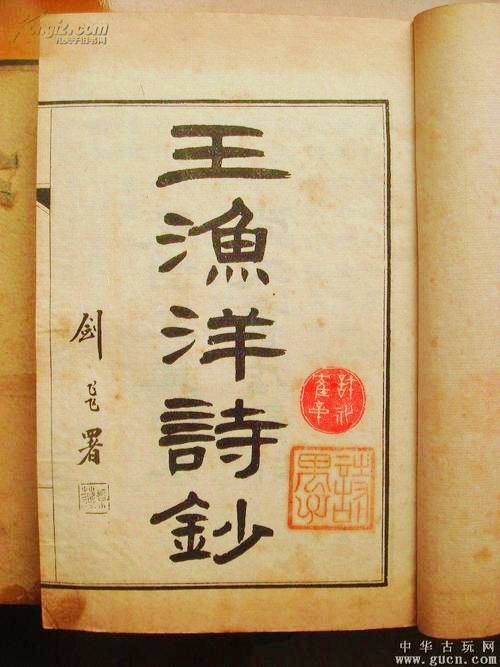 Kongfz.com
孔夫子旧书网
王漁洋詩鈔
劍飞署
中华古玩网
www.gucn.com